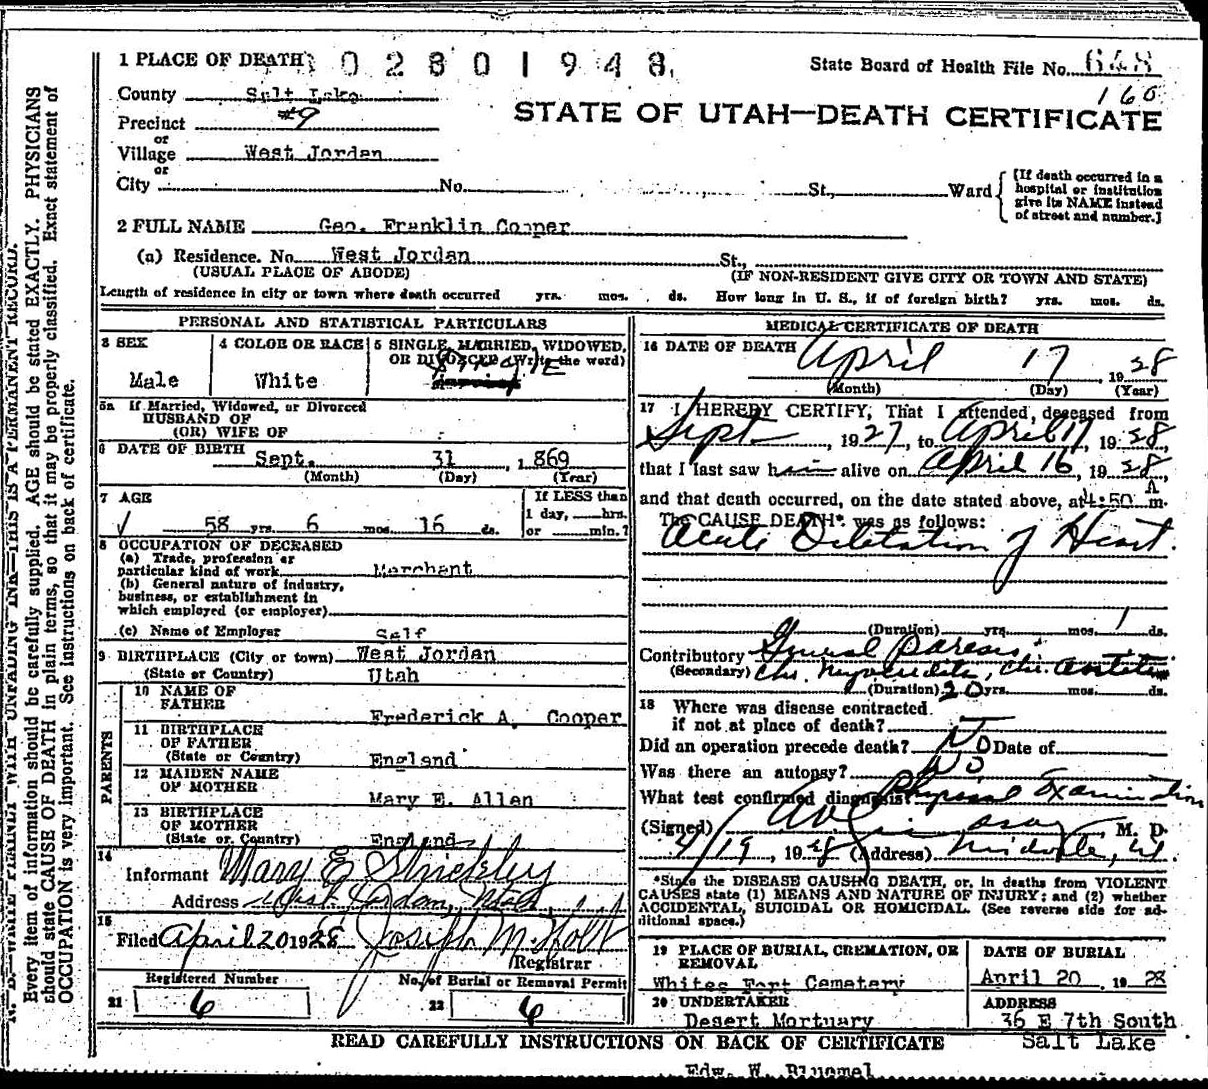 1 PLACE OF DEATH 0 2 8 0 1 9 4 8 State Board of Health File No. 648
160
County Salt Lake
STATE OF UTAH—DEATH CERTIFICATE
Precinct #9
or
Village West Jordan
or
City No. St., Ward
(If death occurred in a hospital or institution give its NAME instead of street and number.)
2 FULL NAME Geo. Franklin Cooper
(a) Residence. No. West Jordan St.,
(USUAL PLACE OF ABODE) (IF NON-RESIDENT GIVE CITY OR TOWN AND STATE)
Length of residence in city or town where death occurred yrs. mos. ds. How long in U. S., if of foreign birth? yrs. mos. ds.
PERSONAL AND STATISTICAL PARTICULARS
3 SEX
Male
4 COLOR OR RACE
White
5 SINGLE, MARRIED, WIDOWED,
OR DIVORCED (Write the word)
5a If Married, Widowed, or Divorced
HUSBAND OF
(OR) WIFE OF
6 DATE OF BIRTH Sept. 31, 1869
(Month) (Day) (Year)
7 AGE
58 yrs 6 mos. 16 ds.
If LESS than
1 day, hrs.
or min.?
8 OCCUPATION OF DECEASED
(a) Trade, profession or
particular kind of work Merchant
(b) General nature of industry,
business, or establishment in
which employed (or employer)
(c) Name of Employer Self
9 BIRTHPLACE (City or town) West Jordan
(State or Country) Utah
PARENTS
10 NAME OF
FATHER
Frederick A. Cooper
11 BIRTHPLACE
OF FATHER
(State or Country) England
12 MAIDEN NAME
OF MOTHER
Mary E. Allen
13 BIRTHPLACE
OF MOTHER
(State or Country) England
14
Informant Mary E Strickley
Address West Jordan, Utah
15
Filed April 20 1928 Joseph M. Holt
Registrar
Registered Number No. of Burial or Removal Permit
21 6 22 6
MEDICAL CERTIFICATE OF DEATH
16 DATE OF DEATH April 17 1928
(Month) (Day) (Year)
17 I HEREBY CERTIFY, That I attended, deceased from
Sept , 1927, to April 17 1928
that I last saw him alive on April 16, 1928,
and that death occurred, on the date stated above, at 4:50 A m.
The CAUSE DEATH* was as follows:
Acute Dilatation of Heart.
(Duration) yrs. mos. 1 ds.
Contributory General Paresis
(Secondary) Chr. Myocarditis, Chr.
(Duration) 20 yrs. mos. ds.
18 Where was disease contracted
if not at place of death?
Did an operation precede death? No Date of
Was there an autopsy? No
What test confirmed diagnosis? Physical Examination
(Signed) M. D.
4/19, 1928 (Address) Midvale, Ut.
*State the DISEASE CAUSING DEATH, or, in deaths from VIOLENT
CAUSES state (1) MEANS AND NATURE OF INJURY; and (2) whether
ACCIDENTAL, SUICIDAL OR HOMICIDAL. (See reverse side for ad-
ditional space.)
19 PLACE OF BURIAL, CREMATION, OR
REMOVAL
Whites Fort Cemetery
DATE OF BURIAL
April 20 1928
20 UNDERTAKER
Desert Mortuary
ADDRESS
36 E 7th South
Salt Lake
READ CAREFULLY INSTRUCTIONS ON BACK OF CERTIFICATE
Edw. W.
N. B.—WRITE PLAINLY WITH UNFADING INK—THIS IS A PERMANENT RECORD.
Every item of information should be carefully supplied. AGE should be stated EXACTLY. PHYSICIANS
should state CAUSE OF DEATH in plain terms, so that it may be properly classified. Exact statement of
OCCUPATION is very important. See instructions on back of certificate.